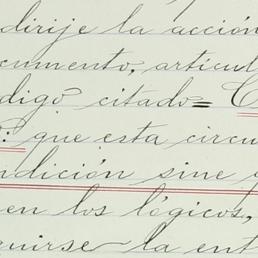 dirije la acción
cumento, articul
digo citado=
: que esta circu
ndición sine
en los lógicos,
uirse la ent